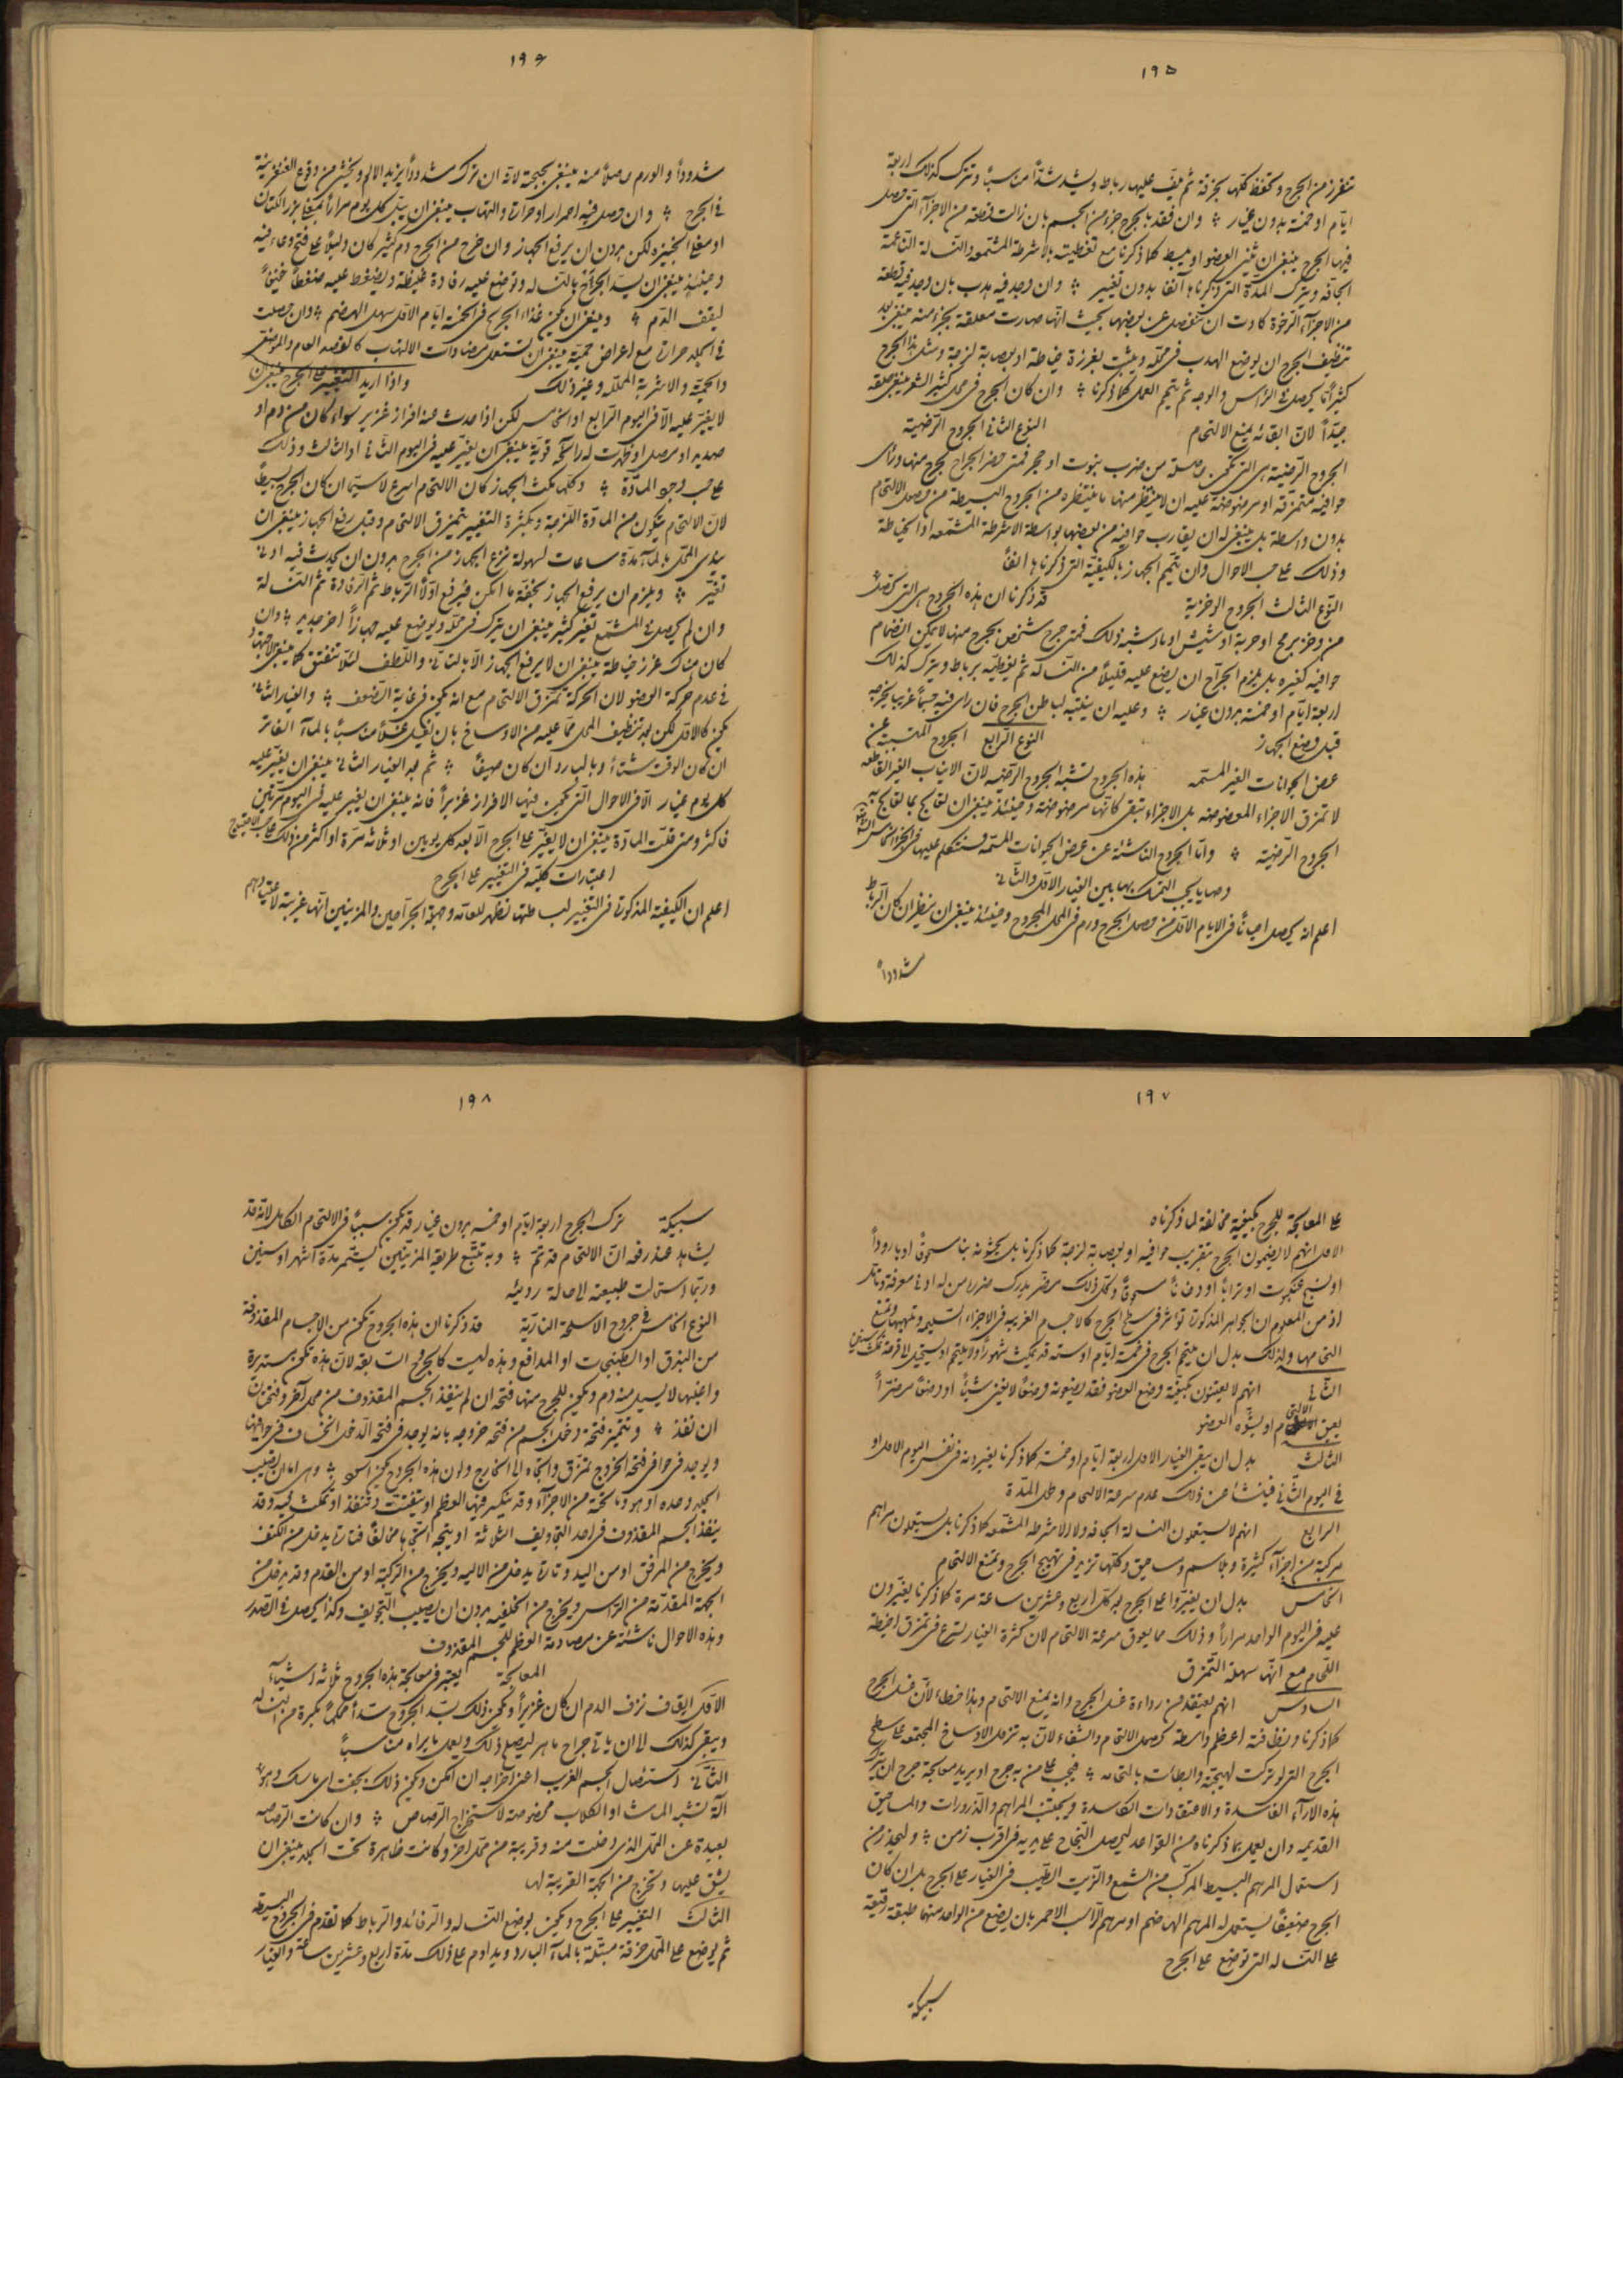 ١٩٥
تنغرز من الجرح وتحفظ كلها بخرقة ثم يلف عليها رباط ويشد شدًا مناسبًا وتترك كذلك اربعة
ايام او خمسة بدون غيار وان فقد بالجرح جزء من الجسم بان زالت قطعة من الاجزآء التي حصل
فيها الجرح ينبغي ان يثنى العضو او يبسط كما ذكرنا مع تغطيته بالاشرطة المشمعه والنسالة الناعمة
الجافه ويترك المدة التي ذكرناها آنفا بدون تغيير وان وجد فيه هدب بان وجد فيه قطعة
من الاجزآء الرخوة كادت ان تنفصل عن بعضها بحيث انها صارت معلقة بجزء منه ينبغي بعد
تنظيف الجرح ان يوضع الهدب في محله ويثبت بغرزة خياطة او بعصابة لزجة ومثل هذا الجرح
كثيرًا ما يحصل في الرأس والوجه ثم يتمم العمل كما ذكرنا وان كان الجرح في محل كثير الشعر ينبغي حلقه
جيّدًا لان ابقائه يمنع الالتحام النوع الثاني الجروح الرضية
الجروح الرضية هي التي تكون حاصلة من ضرب نبوت او حجر فمتى حضر الجراح لجرح منها ورأى
حوافيه متمزقة او مرضوضة عليه ان لا ينتظر منها ما ينتظره من الجروح البسيطة من حصول الالتحام
بدون واسطة بل ينبغي له ان يقارب حوافيه من بعضها بواسطة الاشرطة المشمعه او الخياطة
وذلك على حسب الاحوال وان يتمم الجهاز بالكيفية التي ذكرناها انفًا
النوع الثالث الجروح الوخزية قد ذكرنا ان هذه الجروح هي التي تحصل
من وخز برمح او حربة او شيش او ما شبه ذلك فمتى جرح شخص بجرح منها لا يمكن انضمام
حوافيه كغيره بل يلزم الجراح ان يضع عليه قليلًا من النسالة ثم يغطيه برباط ويترك كذلك
اربعة ايام او خمسة بدون غيار وعليه ان ينتبه لباطن الجرح فان رأى فيه جسمًا غريبا يخرجه
قبل وضع الجهاز النوع الرابع الجروح المتسببة عن
عض الحيوانات الغير المسمه هذه الجروح تشبه الجروح الرضيه لان الانياب الغير القاطعه
لا تمزق الاجزاء المعضوضه بل الاجزاء تبقى كانها مرضوضة وحينئذ ينبغي ان تعالج بما تعالج به
الجروح الرضية وامّا الجروح الناشئة عن عض الحيوانات المسمه فسنتكلم عليها في
وصايا يجب التمسك بها بين الغيار الاول والثاني
اعلم انه يحصل احيانًا في الايام الاول من حصول الجرح ورم في المحل المجروح وحينئذ ينبغي ان ينظر ان كان الرباط
شدودًا
١٩٦
شدودًا والورم حاصلًا منه ينبغي بحبحته لانه ان ترك شدودًا يزيد الالم ويخشى من وقوع الغنغرينة
في الجرح وان حصل فيه احمرار او حرارة والتهاب ينبغي ان يبلّ كل يوم مرارًا بمغلي بزر الكتان
او مغلي الخبيزة لكن بدون ان يرفع الجهاز وان خرج من الجرح دم كثير كان دليلًا على فتح وعاء فيه
وحينئذ ينبغي ان يسد الجرح بالنسالة وتوضع عليه رفادة غليظة ويضغط عليه ضغطًا خفيفًا
ليقف الدم وينبغي ان يكون غذاء الجريح في الخمسة ايام الاول سهل الهضم وان حصلت
في الجلد حرارة مع اعراض حمية ينبغي ان تستعمل مضادات الالتهاب كالفصد العام والموضعي
والحمية والاشربة المحللة وغير ذلك واذا اريد التغيير على الجرح ينبغي ان
لا يغير عليه الا في اليوم الرابع او الخامس لكن اذا حدث منه افراز غزير سواء كان من دم او
صديد او حصل او ظهرت له رائحة قوية ينبغي ان يغير عليه في اليوم الثاني او الثالث وذلك
على حسب وجود المادّة وكلما مكث الجهاز كان الالتحام اسرع لا سيما ان كان الجرح بسيطًا
لان الالتحام يتكون من المادّة اللزجة وبكثرة التغيير يتمزق الالتحام وقبل رفع الجهاز ينبغي ان
يندى المحل بالمآء مدّة ساعات لسهولة نزع الجهاز من الجرح بدون ان يحدث فيه ادنى
تغيّر ويلزم ان يرفع الجهاز بخفّة ما امكن فيرفع اوّلًا الرباط ثم الرفادة ثم النسالة
وان لم يحصل في المشمّع تغير كثير ينبغي ان يترك في محله ويوضع عليه جهازًا اخر جديد وان
كان هناك غرز خياطة ينبغي ان لا يرفع الجهاز الا بالتاني واللطف لئلا تنفتق كما ينبغي الاجتهاد
في عدم حركة العضو لان الحركة تمزق الالتحام مع انه يكون في غاية الضعف والغيار الثاني
يكون كالاول لكن بعد تنظيف المحل مما عليه من الاوساخ بان يغسل غسلًا مناسبًا بالمآء الفاتر
ان كان الوقت شتاءً وبالبارد ان كان صيفًا ثم بعد الغيار الثاني ينبغي ان يغير عليه
كل يوم غيار الا في الاحوال التي يكون فيها الافراز غزيرًا فانه ينبغي ان يغير عليه في اليوم مرتين
فاكثر ومتى قلّت المادّة ينبغي ان لا يغيّر على الجرح الّا بعد كل يومين او ثلاثه مرّة او اكثر من ذلك على حسب الاحتياج
اعتبارات كليّه في التغيير على الجرح
اعلم ان الكيفية المذكورة في التغيير لبساطتها تظهر للعامه وجهلة الجراحين والمزينين انها غريبة لاعتيادهم
١٩٧
على المعالجة للجرح بكيفية مخالفة لما ذكرناه
الاول انهم لا يضمون الجرح بتقريب حوافيه او بعصابة لزجة كما ذكرنا بل يحشونه بنا مسحوقًا او بارودًا
او نسج عنكبوت او ترابًا او دخانًا مسحوقًا وكل ذلك مضر يدرك ضرره من له ادنى معرفة وتأمل
اذ من المعلوم ان الجواهر المذكورة تؤثر في سطح الجرح كالاجسام الغريبه في الاجزاء السليمه وتهيجها وتمنع
التحامها ولذلك بدل ان يلتحم الجرح في خمسة ايام او سته قد يمكث شهورًا ولا يلتحم او يستحيل الى قرحة تمكث سنين
الثاني انهم لا يعتنون بكيفية وضع العضو فقد يضعونه وضعًا لا يغني شيئًا او وضعًا مضرًا
يعيق الالتحام او يشوّه العضو
الثالث بدل ان يبقى الغيار الاول اربعة ايام او خمسة كما ذكرنا يغيرونه في نفس اليوم الاول او
في اليوم الثاني فينشأ عن ذلك عدم سرعة الالتحام وطول المدّة
الرابع انهم لا يستعملون النسالة الجافه ولا الاشرطه المشمعه كما ذكرنا بل يستعملون مراهم
مركبة من اجزآء كثيرة وبلاسم ومساحيق وكلها تزيد في تهييج الجرح وتمنع الالتحام
الخامس بدل ان يغيّروا على الجرح بعد كل اربع وعشرين ساعة مرة كما ذكرنا يغيرون
عليه في اليوم الواحد مرارًا وذلك مما يعوق سرعة الالتحام لان كثرة الغيار تسرع في تمزق اخيطة
اللحام مع انها سهلة التمزق
السادس انهم يعتقدون رداءة غسل الجرح وانه يمنع الالتحام وهذا خطاء لأن غسل الجرح
كما ذكرنا ونظافته اعظم واسطة لحصول الالتحام والشفاء لانّ به تزول الاوساخ المجتمعه على سطح
الجرح التي لو تركت لهيجته وابطات بالتحامه فيجب على من به جرح او يريد معالجة جرح ان يترك
هذه الارآء الفاسدة والاعتقادات الكاسدة ويجتنب المراهم والذرورات والمساحيق
القديمه وان يعمل بما ذكرناه من القواعد ليحصل النجاح على يديه في اقرب زمن وليحذر من
استعمال المرهم البسيط المركّب من الشمع والزيت الطيب في الغيار على الجرح بل ان كان
الجرح ضعيفًا يستعمل له المرهم الهاضم او مرهم الراسب الاحمر بان يضع من الواحد منهما طبقة رقيقة
على النسالة التي توضع على الجرح
سبيكة
١٩٨
سبيكة ترك الجرح اربعة ايام او خمسه بدون غيار قد يكون سببًا في الالتحام الكامل لانه قد
يشاهد عند رفعه انّ الالتحام قد تمّ وبه تتبّع طريقة المزيّنين يستمر مدّة اشهر او سنين
وربّما استحالت طبيعته الى حالة رديئه
النوع الخامس في جروح الاسلحة الناريّة قد ذكرنا ان هذه الجروح تكون من الاجسام المقذوفة
من البندق او الطبنجات او المدافع وهذه ليست كالجروح السابقه لان هذه تكون مستديرة
واغلبها لا يسيل منه دم ويكون للجرح منها فتحة ان لم ينفذ الجسم المقذوف من محل آخر وفتحتان
ان نفذ وتتميز فتحة دخول الجسم من فتحة خروجه بانه يوجد في فتحة الدخول انخساف في حوافيها
ويوجد في حوافي فتحة الخروج تمزق واتجاه الى الخارج ولون هذه الجروح يكون اسود وهي اما ان تصيب
الجلد وحده او هو وما تحته من الاجزآء وقد ينكسر فيها العظم او يتفتت وتنفذ او تمكث فيه وقد
ينفذ الجسم المقذوف في احد التجاويف الثلاثة او يتجه اتجاها مخالفًا فتارة يدخل من الكتف
ويخرج من المرفق او من اليد وتارة يدخل من الاليه ويخرج من الركبة او من القدم وقد يدخل من
الجهة المقدّمة من الرأس ويخرج من الخلفيه بدون ان يصيب التجويف وكذا يحصل في الصدر
وهذه الاحوال ناشئة عن مصادمة العظم للجسم المقذوف
المعالجة يعتبر في معالجة هذه الجروح ثلاثه اشيآء
الاول ايقاف نزف الدم ان كان غزيرًا ويكون ذلك بسدّ الجروح سدًا محكمًا بكرة من النسالة
ويبقى كذلك الى ان ياتي جراح ماهر ليصلح ذلك ويعمل ما يراه مناسبًا
الثاني استئصال الجسم الغريب اعني اخراجه ان امكن ويكون ذلك بجفت اي ماسك وهو
آلة تشبه الماشه او الكلاب مخصوصة لاستخراج الرصاص وان كانت الرصاصه
بعيدة عن المحل الذي دخلت منه وقريبة من محل اخر وكانت ظاهرة تحت الجلد ينبغي ان
يشق عليها وتخرج من الجهة القريبة لها
الثالث التغيير على الجرح ويكون بوضع النسالة والرفائد والرباط كما تقدّم في الجروح البسيطه
ثم يوضع على المحل خرقة مبتلّة بالمآء البارد ويداوم على ذلك مدّة اربع وعشرين ساعة والغيار